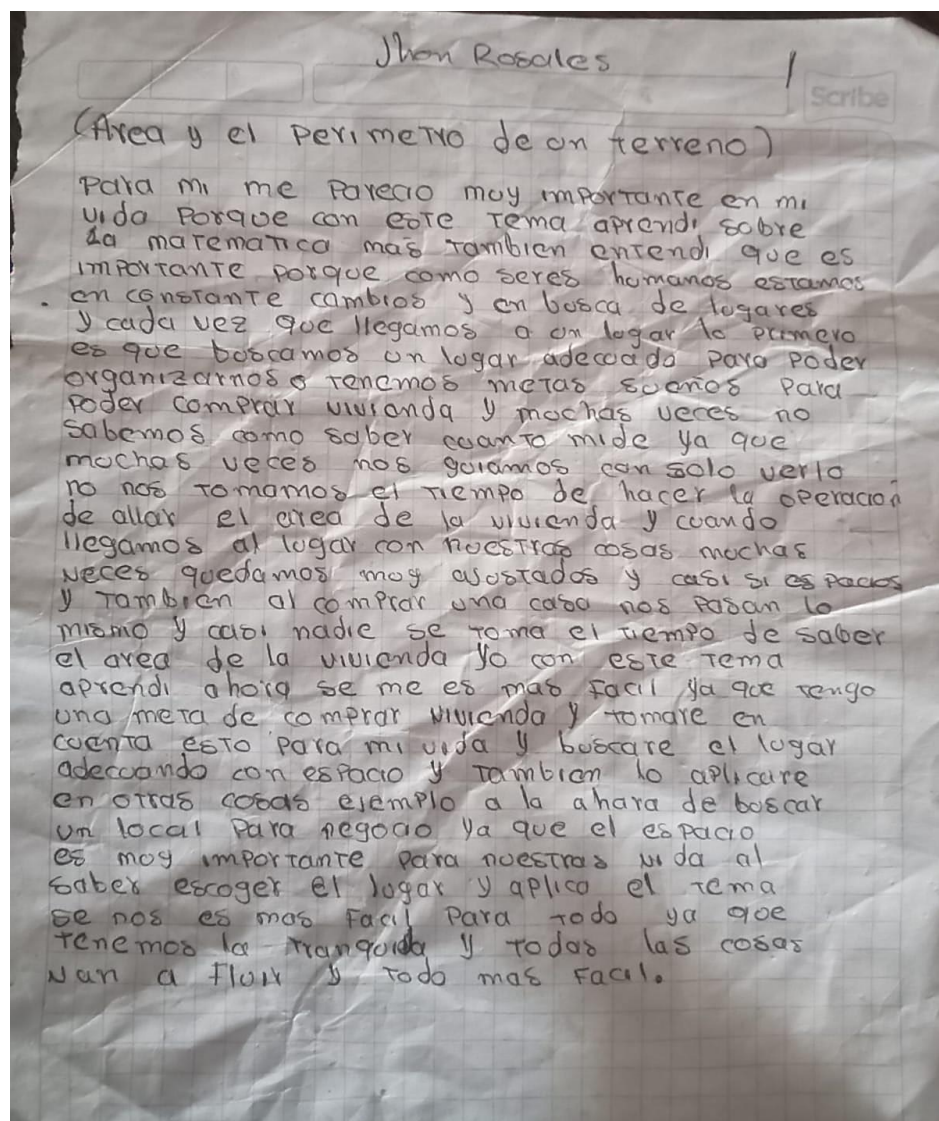 Jhon Rosales
Scribe
(Area y el Perimetro de un terreno)
Para mi me Parecio muy importante en mi
vida Porque con este Tema aprendi sobre
La matematica mas Tambien entendi que es
importante porque como seres humanos estamos
en constante cambios y en busca de lugares
y cada vez que llegamos a un lugar lo primero
es que buscamos un lugar adecuado para poder
organizarnos o tenemos metas sueños para
Poder comprar vivianda y muchas veces no
sabemos como saber cuanto mide ya que
muchas veces nos guiamos con solo verlo
no nos tomamos el tiempo de hacer la operacion
de allar el area de la vivienda y cuando
llegamos al lugar con nuestras cosas muchas
veces quedamos muy ajustados y casi si espacios
y tambien al comprar una casa nos pasan lo
mismo y casi nadie se toma el tiempo de saber
el area de la vivienda Yo con este Tema
aprendi ahora se me es mas Facil ya que tengo
una meta de comprar vivienda y tomare en
cuenta esto para mi vida y buscare el lugar
adecuando con espacio y tambien lo aplicare
en otras cosas ejemplo a la ahara de buscar
un local Para negocio ya que el espacio
es muy importante para nuestras vida al
saber escoger el lugar y aplico el tema
se nos es mas Facil Para todo ya que
tenemos la y todas las cosas
van a fluir y todo mas Facil.